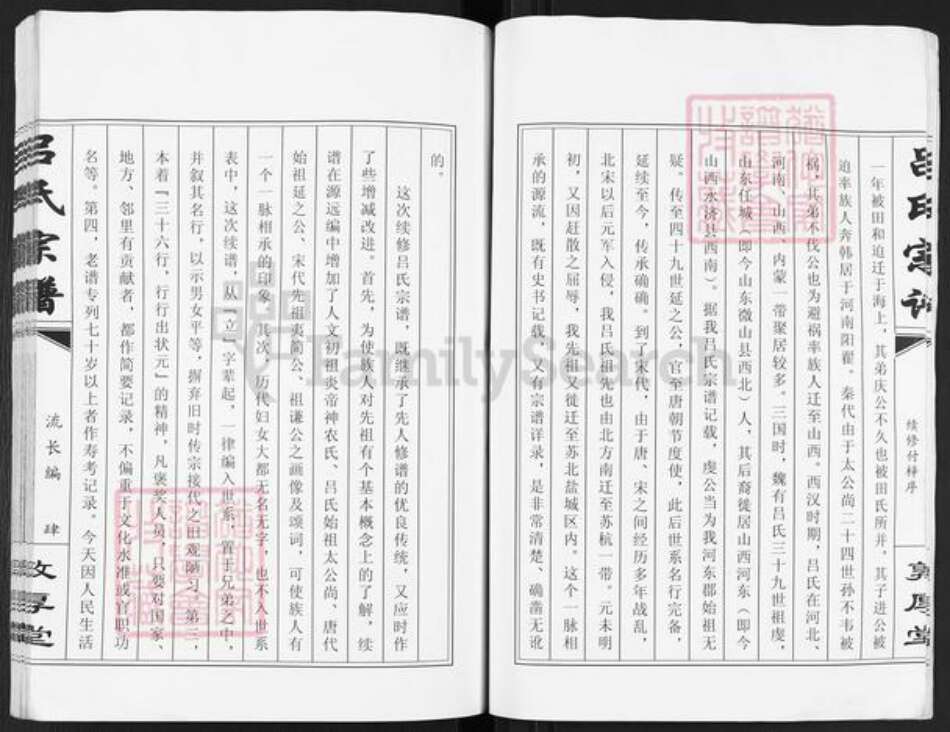 吕氏宗谱
续修付梓序
敦厚堂
一年被田和迫迁于海上，其弟庆公不久也被田氏所并，其子进公被
迫率族人奔韩居于河南阳翟。秦代由于太公尚二十四世孙不韦被
祸，其弟不伐公也为避祸率族人迁至山西。西汉时期，吕氏在河北、
河南、山西、内蒙一带聚居较多。三国时，魏有吕氏三十九世祖虔，
山东任城（即今山东微山县西北）人，其后裔徙居山西河东（即今
山西永济县西南）。据我吕氏宗谱记载，虔公当为我河东郡始祖无
疑。传至四十九世延之公，官至唐朝节度使，此后世系名行完备，
延续至今，传承确确。到了宋代，由于唐、宋之间经历多年战乱，
北宋以后元军入侵，我吕氏祖先也由北方南迁至苏杭一带。元末明
初，又因赶散之屈辱，我先祖又徙迁至苏北盐城区内。这个一脉相
承的源流，既有史书记载，又有宗谱详录，是非常清楚、确凿无讹
的。
这次续修吕氏宗谱，既继承了先人修谱的优良传统，又应时作
了些增减改进。首先，为使族人对先祖有个基本概念上的了解，续
谱在源远编中增加了人文初祖炎帝神农氏、吕氏始祖太公尚、唐代
始祖延之公、宋代先祖夷简公、祖谦公之画像及颂词，可使族人有
一个一脉相承的印象。其次，历代妇女大都无名无字，也不入世系
表中，这次续谱，从『立』字辈起，一律编入世系，置于兄弟之中，
并叙其名行，以示男女平等，摒弃旧时传宗接代之旧观陋习。第三，
本着『三十六行，行行出状元』的精神，凡褒奖人员，只要对国家、
地方、邻里有贡献者，都作简要记录，不偏重于文化水准或官职功
名等。第四，老谱专列七十岁以上者作寿考记录。今天因人民生活
吕氏宗谱
流长编
肆
敦厚堂
FamilySearch